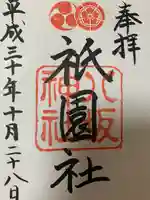 奉拝
八坂神社
祇園社
平成三十年十月二十八日